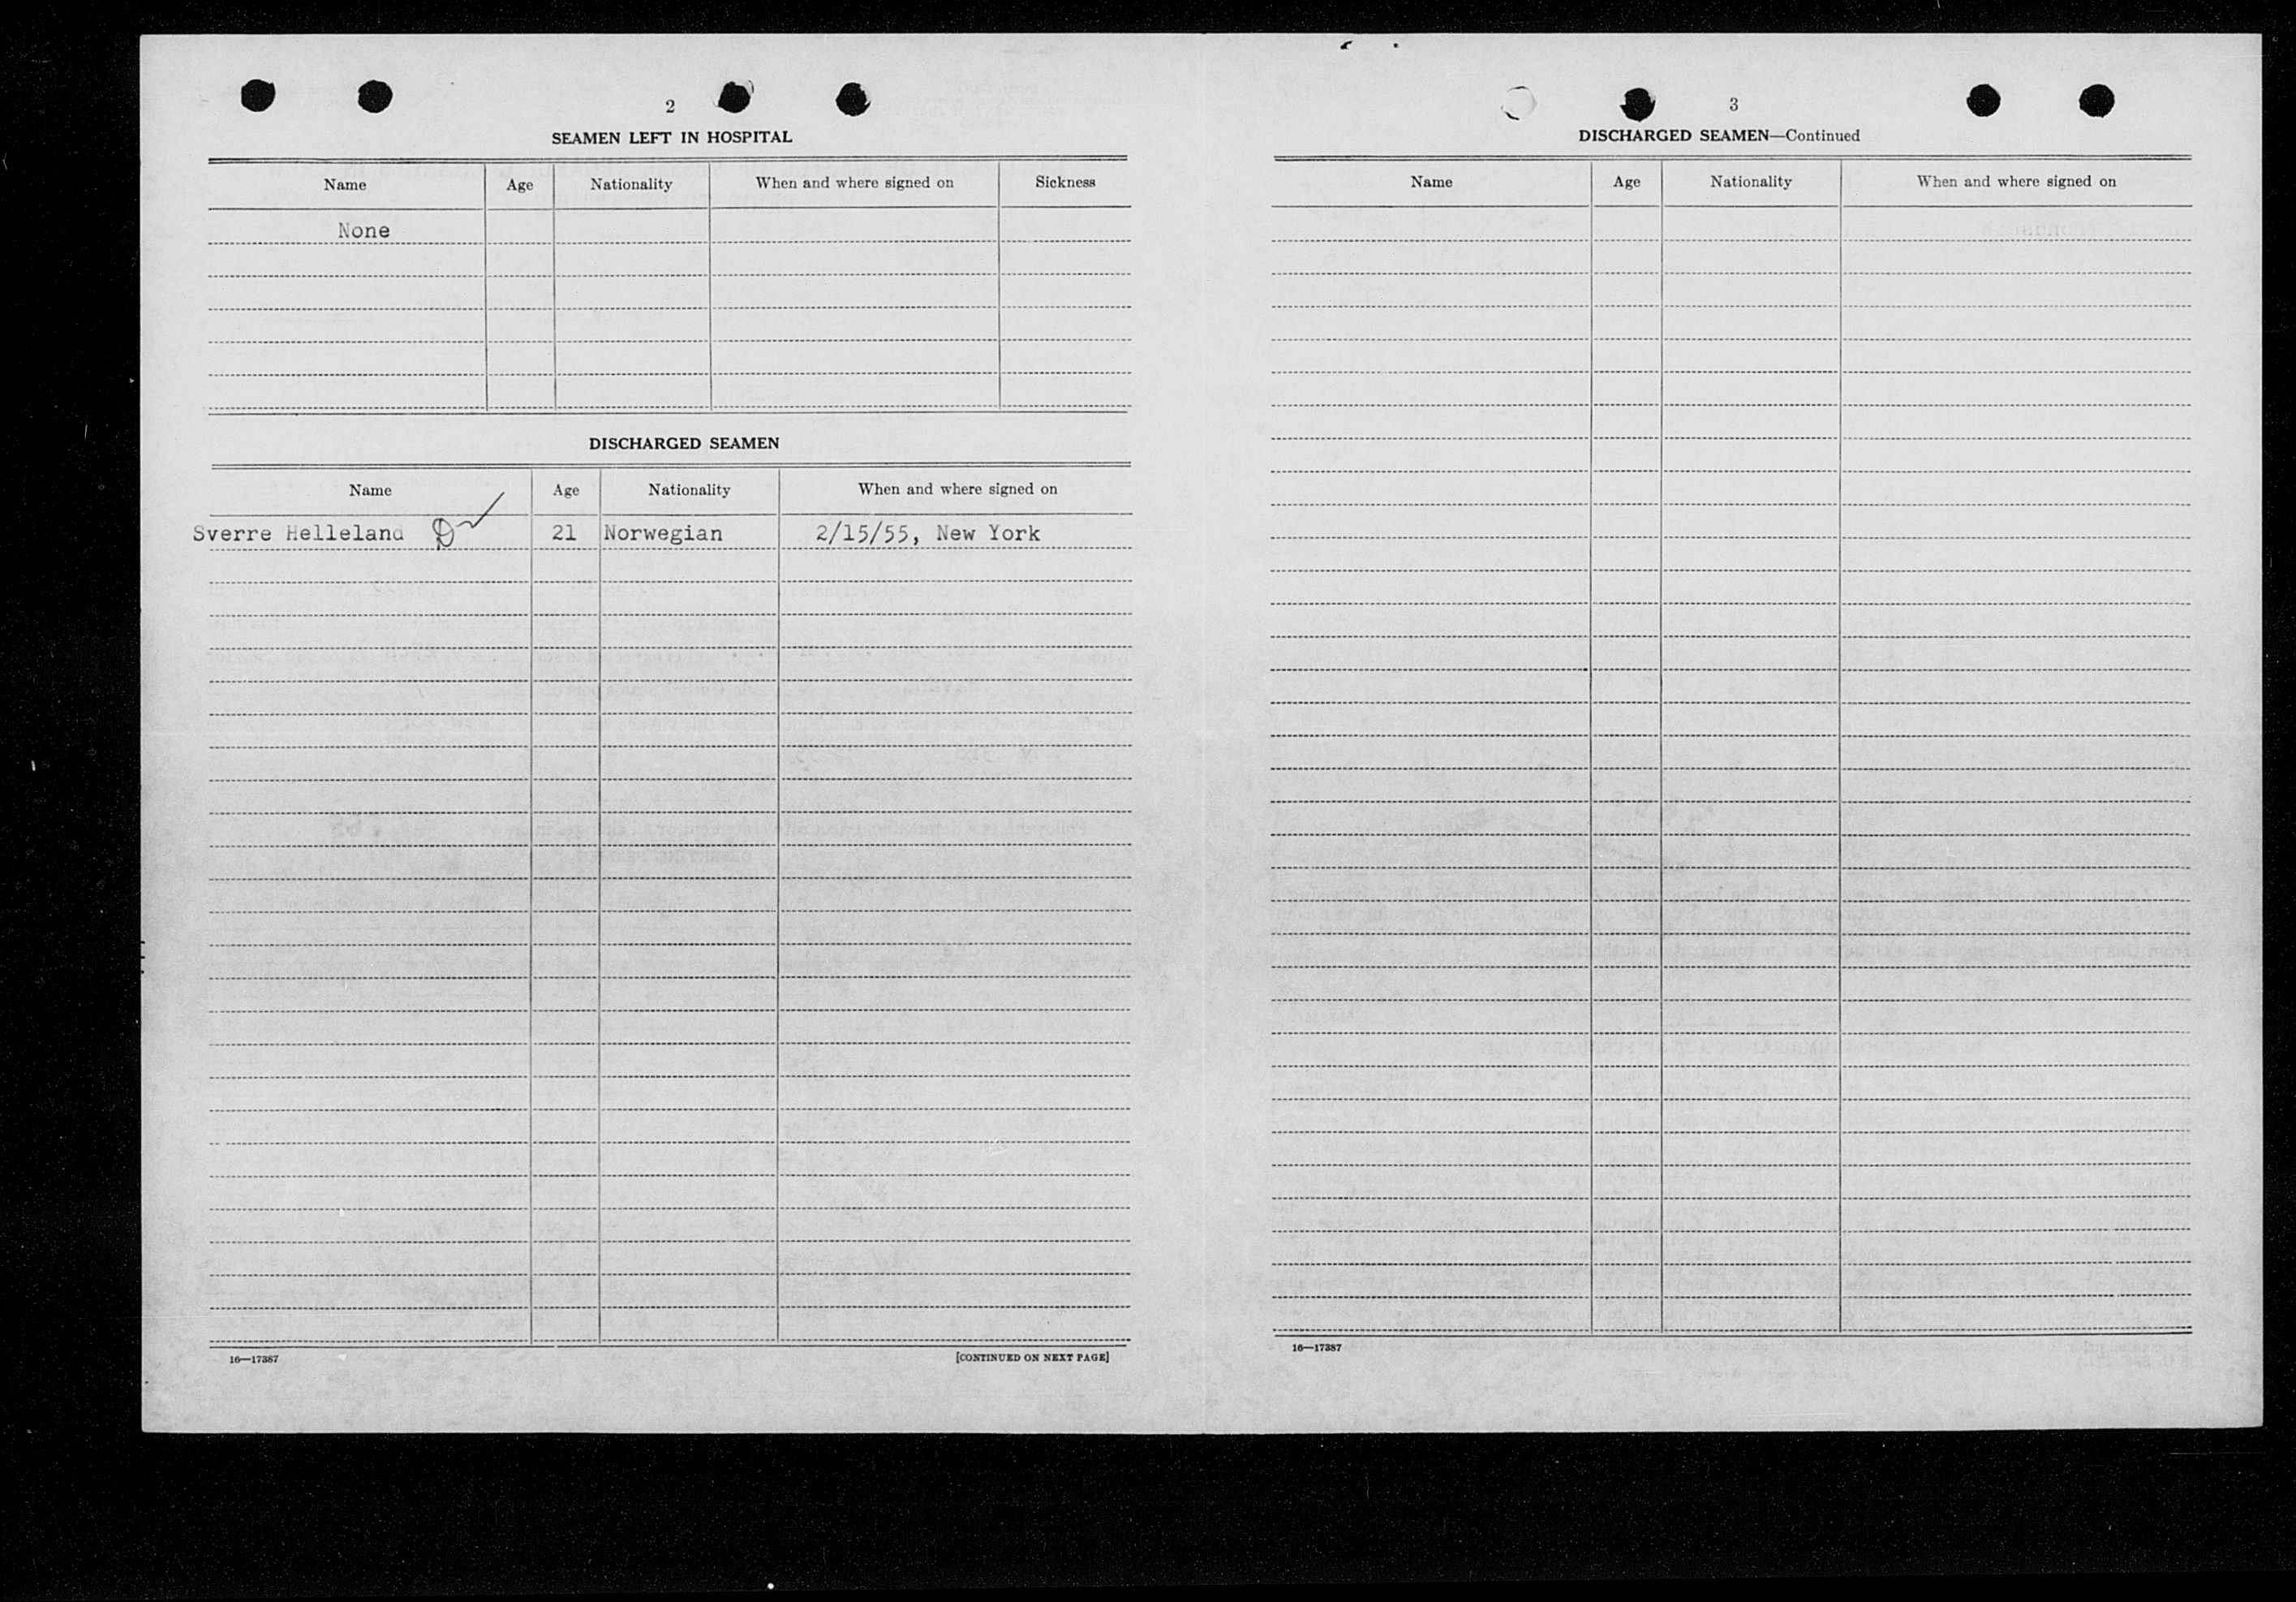 2
SEAMEN LEFT IN HOSPITAL
Name Age Nationality When and where signed on Sickness
None
DISCHARGED SEAMEN
Name Age Nationality When and where signed on
Sverre Helleland D ✓ 21 Norwegian 2/15/55, New York
16—17387 [CONTINUED ON NEXT PAGE]
3
DISCHARGED SEAMEN—Continued
Name Age Nationality When and where signed on
16—17387